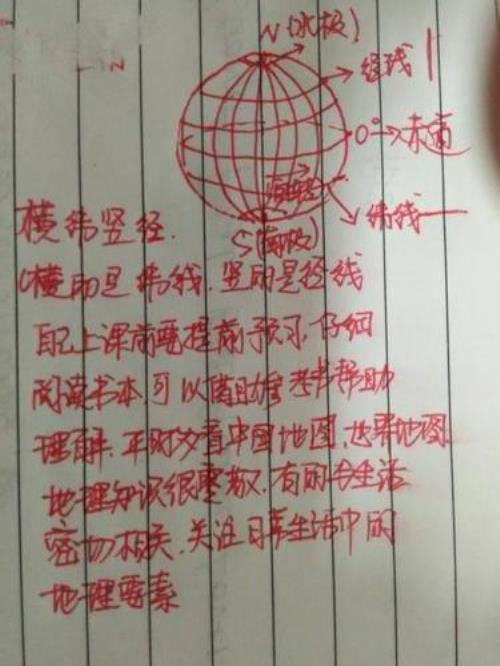 N(北极)
经线
0°→赤道
纬线
S(南极)
横纬竖经.
横的是纬线.竖的是经线
自己上课前要提前预习,仔细
阅读书本,可以借助参考书帮助
理解.平时多看中国地图,世界地图
地理知识很零散.有的与生活
密切相关.关注日常生活中的
地理要素